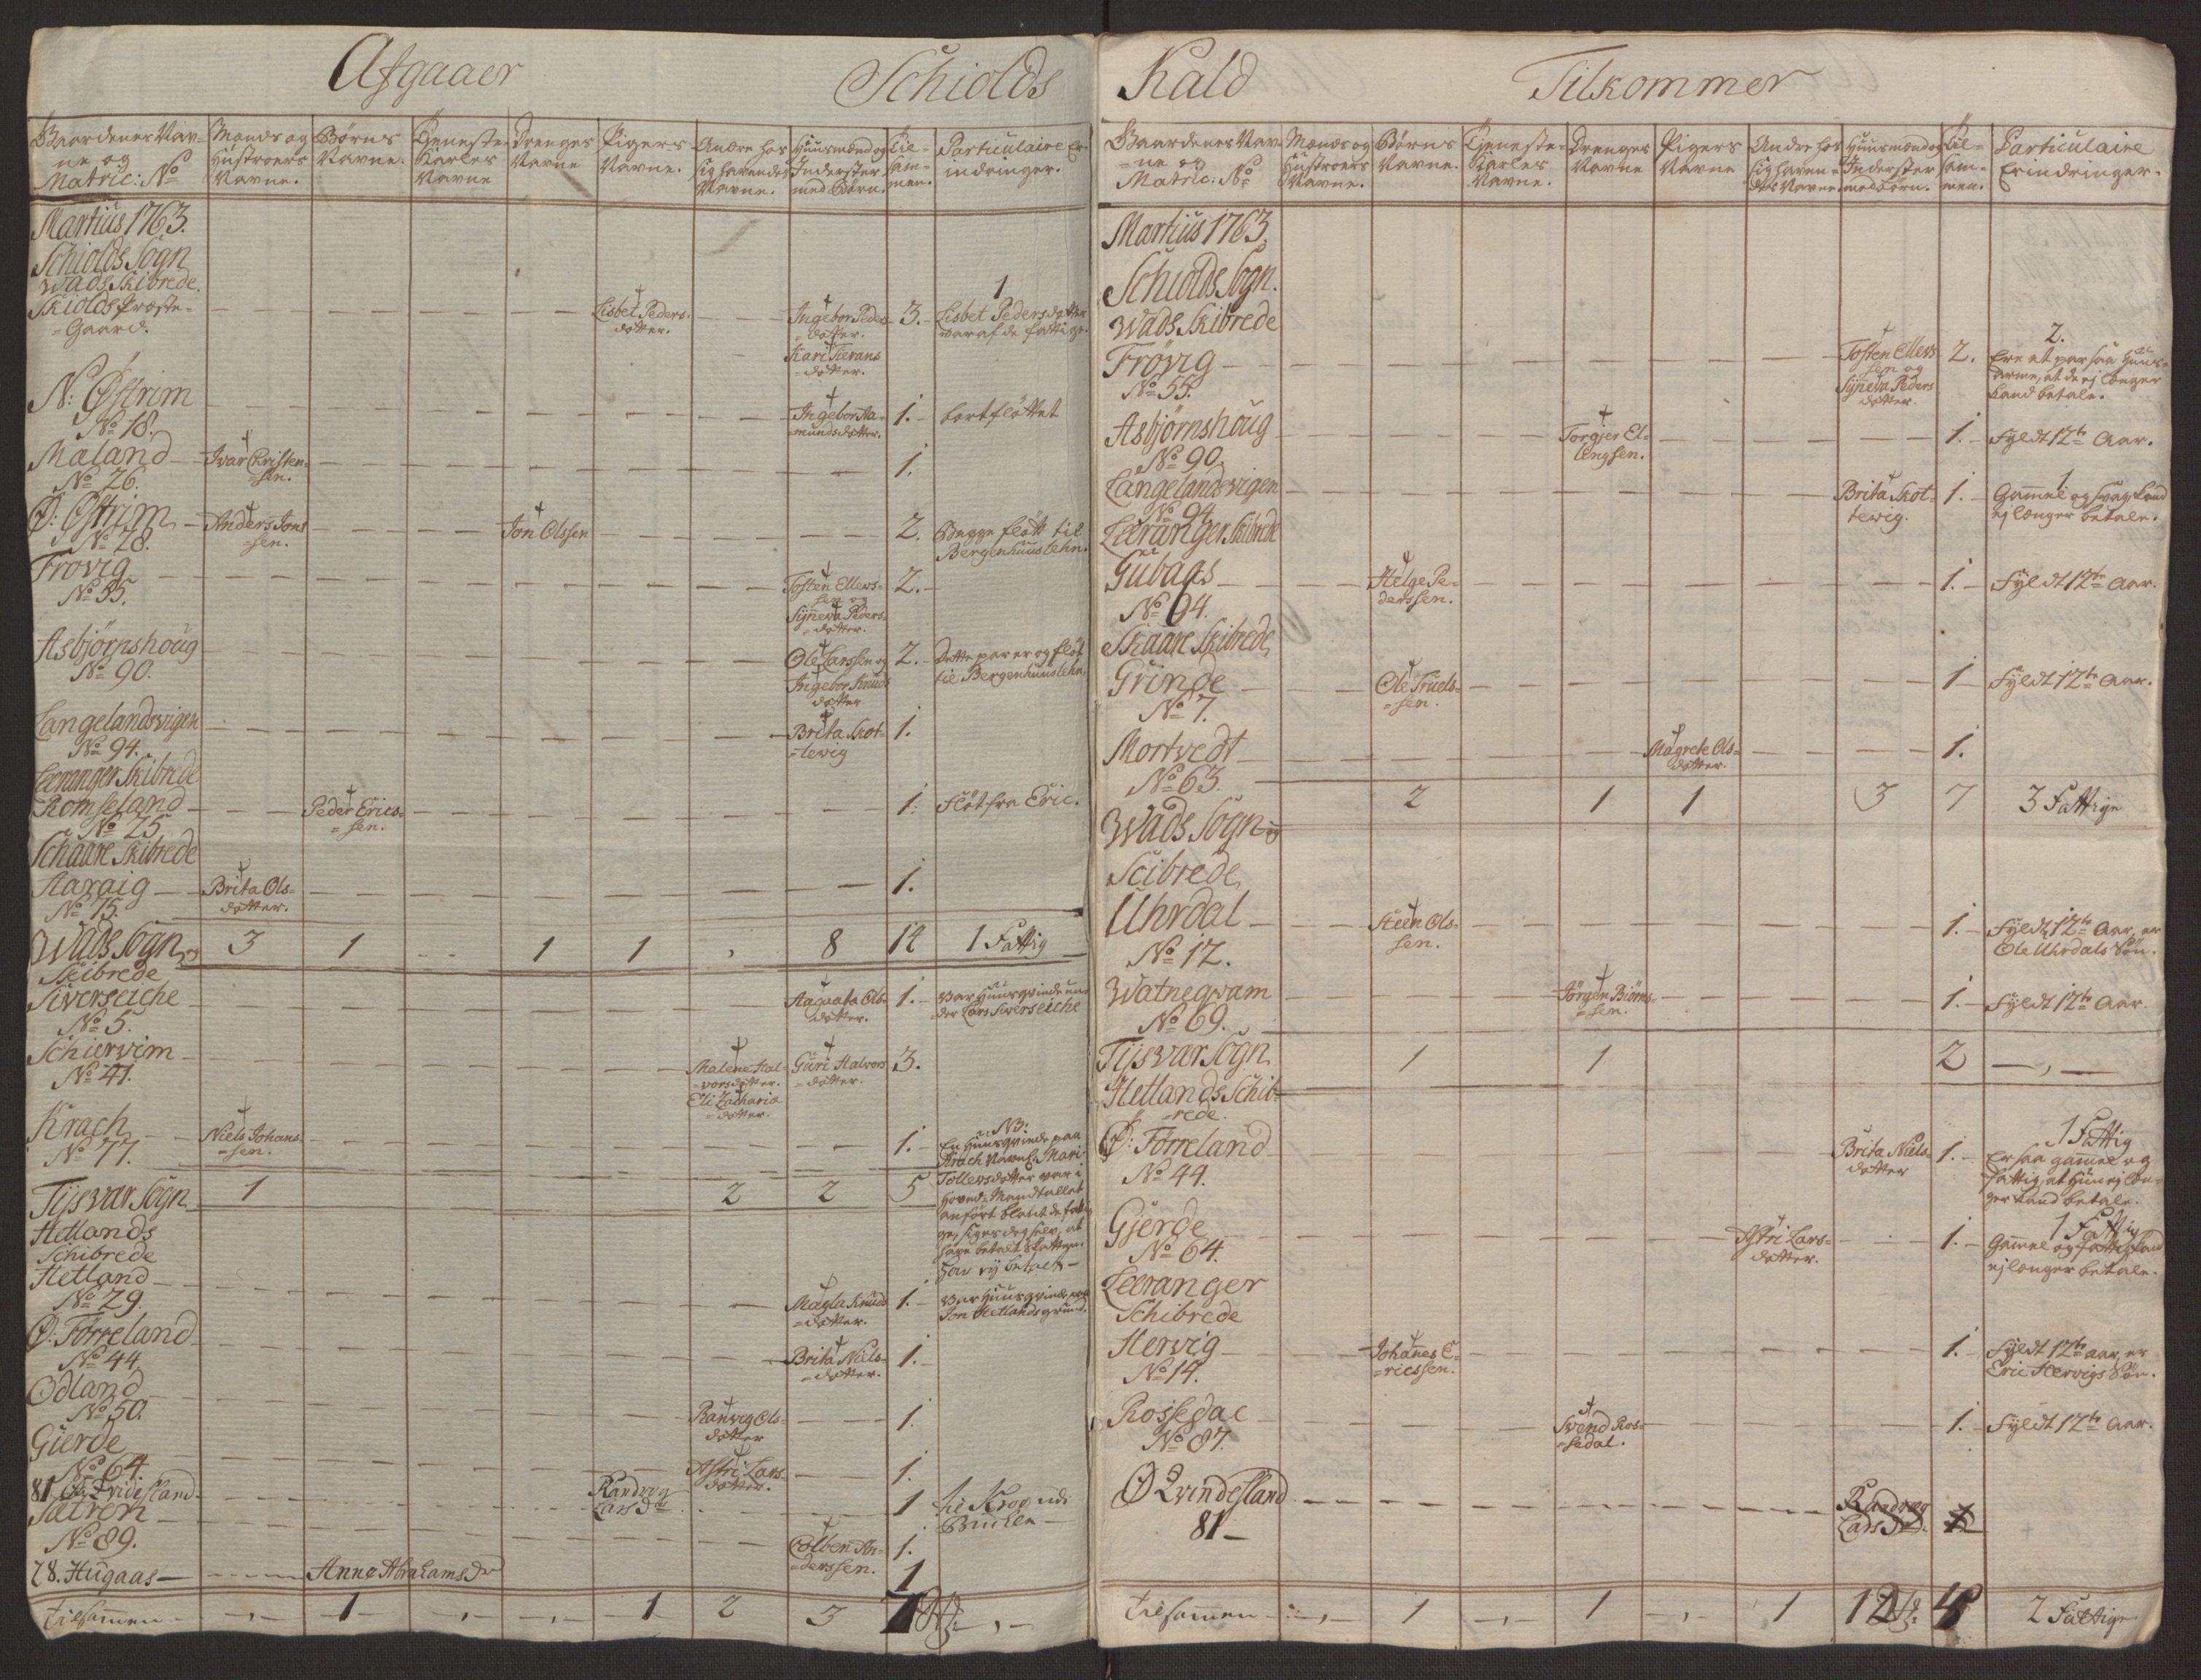 Afgaaer
Schiolds
Gaardenes Nav=
ne og
Matric: No
Mænds og
Hustroers
Navne.
Børns
Navne.
Tjeneste
Karles
Navne
Drenges
Navne
Pigers
Navne.
Andre hos
sig havendes
Navne.
Huusmænd og
Inderster
med Børn.
Til=
sam=
men.
Particulaire Er=
indringer.
Martius 1763.
Schiolds Sogn
Wads Skibrede.
Skiolds Præste=
=Gaard.
Lisbet Peders=
dotter.
Ingebor Peders
=dotter.
Kari Tørans
=dotter.
3.
1
Lisbet Pedersdotter
war af de fattige.
N: Østrim
No 18.
Ingebor Aa=
mundsdotter.
1.
bortfløttet
Maland
No 26.
Ivar Christen=
=sen.
1.
Ø: Østrim
No 28.
Anders Jons
=sen.
Jon Olssen
2.
Begge fløtt til
Bergenhuus lehn.
Frovig
No 55.
Tosten Ellevs=
sen og
Synneva Peders=
=dotter.
2.
Asbjørnshoug
No 90.
Ole Larssen og
Ingebor Knuds
dotter
2.
Dette par er og fløt
til Bergenhuuslehn.
Langelandsvigen
No 94.
Brita Skot=
=tevig
1.
Leeranger Skibrede
Romseland
No 25.
Peder Erics=
=sen.
1.
Fløt fra Eric.
Schaare Skibrede
Aaraig
No 15.
Brita Ols=
dotter.
1.
3 1 1 1 8 14 1 Fattig
Wads Sogn og
Skibrede
Siverseiche
No 5.
Aagaata Ols=
dotter.
1.
War Huusqvinde un=
der Lars Siverseiche
Schiervim
No 41.
Malene Hal=
=vorsdotter.
Eli Zacharia
=dotter.
Guri Halvors
=dotter.
3.
Krach
No 77.
Niels Johans=
=sen.
1.
NB:
En Huusqvinde paa
Krach Navnl. Mari
Tollevsdotter var i
Hoved=Mandtallet
anført blant de fatti
ge, siges dog selv, at
have betalt Skatten.
1 2 2 5
Tysvar Sogn
Hetlands
Schibrede
Hetland
No 29.
Magla Knuds
=dotter.
1.
War Huusqvinde paa
Jon Hetlands grund.
Ø: Førreland
No 44.
Brita Niels=
=dotter.
1.
Odland
No 50.
Ranveg Ols=
dotter
1.
Gierde
No 64.
Astri Lars=
dotter.
1.
81 Ø Qvidesland
Randveg
Lars Dtr
1
Sætren
No 89.
Colben An=
=derssen.
1.
28. Hugaas
Anne Abrahams Dr
1
Tilsammen 1 1 2 3
Kald
Tilkommer
Gaardenes Nav=
=ne og
Matric: No
Mænds og
Hustroers
Navne.
Børns
Navne.
Tjeneste=
Karles
Navne.
Drenges
Navne
Pigers
Navne
Andre hos
sig haven=
des Navne.
Huusmænd og
Inderster
med børn.
Til=
sam=
men.
Particulaire
Erindringer.
Martius 1763.
Schiolds Sogn.
Wads Skibrede
Frøvig
No 55.
Tosten Ellevs
sen og
Syneva Peders
dotter.
2.
2.
Ere et par saa Huus=
arme, at de ej længer
kand betale.
Asbjørnshoug
No 90.
Torgjer El=
lingsen.
1.
Fyldt 12te Aar.
Langelandsvigen
No 94
Brita Skot=
tevig.
1.
1
Gamel og svag kand
ej længer betale.
Leeranger Skibrede
Gubaas
No 94.
Helge Pe=
derssen.
1.
Fyldt 12te Aar.
Skaare Skibrede
Grinde
No 7.
Ole Truels=
=sen.
1
Fyldt 12te Aar.
Mortvedt
No 63.
Magrete Ols=
dotter.
1.
2 1 1 3 7 3 Fattige
Wads Sogn og
Scibrede
Uhrdal
No 12.
Steen Ols=
sen.
1.
Fyldt 12te Aar, er
Ole Uhrdals Søn.
Watneqvam
No 69.
Jørgen Biørns=
=sen.
1.
Fyldt 12te Aar
1 1 2
Tysvar Sogn
Hetlands Schib=
=rede.
Ø: Førreland
No 44.
Brita Niels
dotter
1.
1 Fattig
Er saa gamel og
fattig, at hun ej læn=
ger kand betale.
Gjerde
No 64.
Astri Lars=
dotter.
1.
1 Fattig
Gamel og fattig kand
ej længer betale.
Leeranger
Schibrede
Hervig
No 14.
Johanes E=
=ricssen.
1.
Fyldt 12te aar, er
Eric Hervigs Søn.
Rossedal
No 87.
Svend Ros=
=sedal.
1.
Fyldt 12te Aar.
Ø Qvindesland
81
Randveg
Lars D.
Tilsammen 1 1 1 2 Fattige